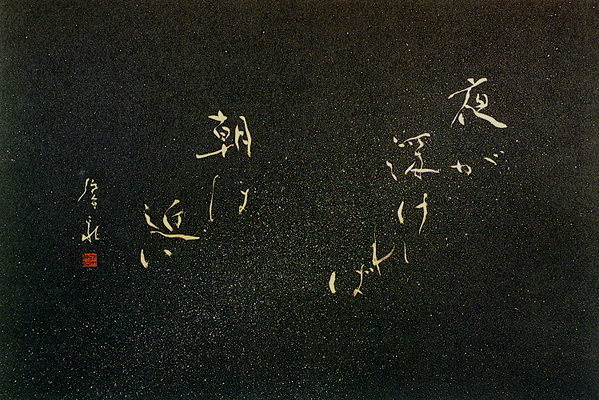 夜が
深け
れば
朝は
近い